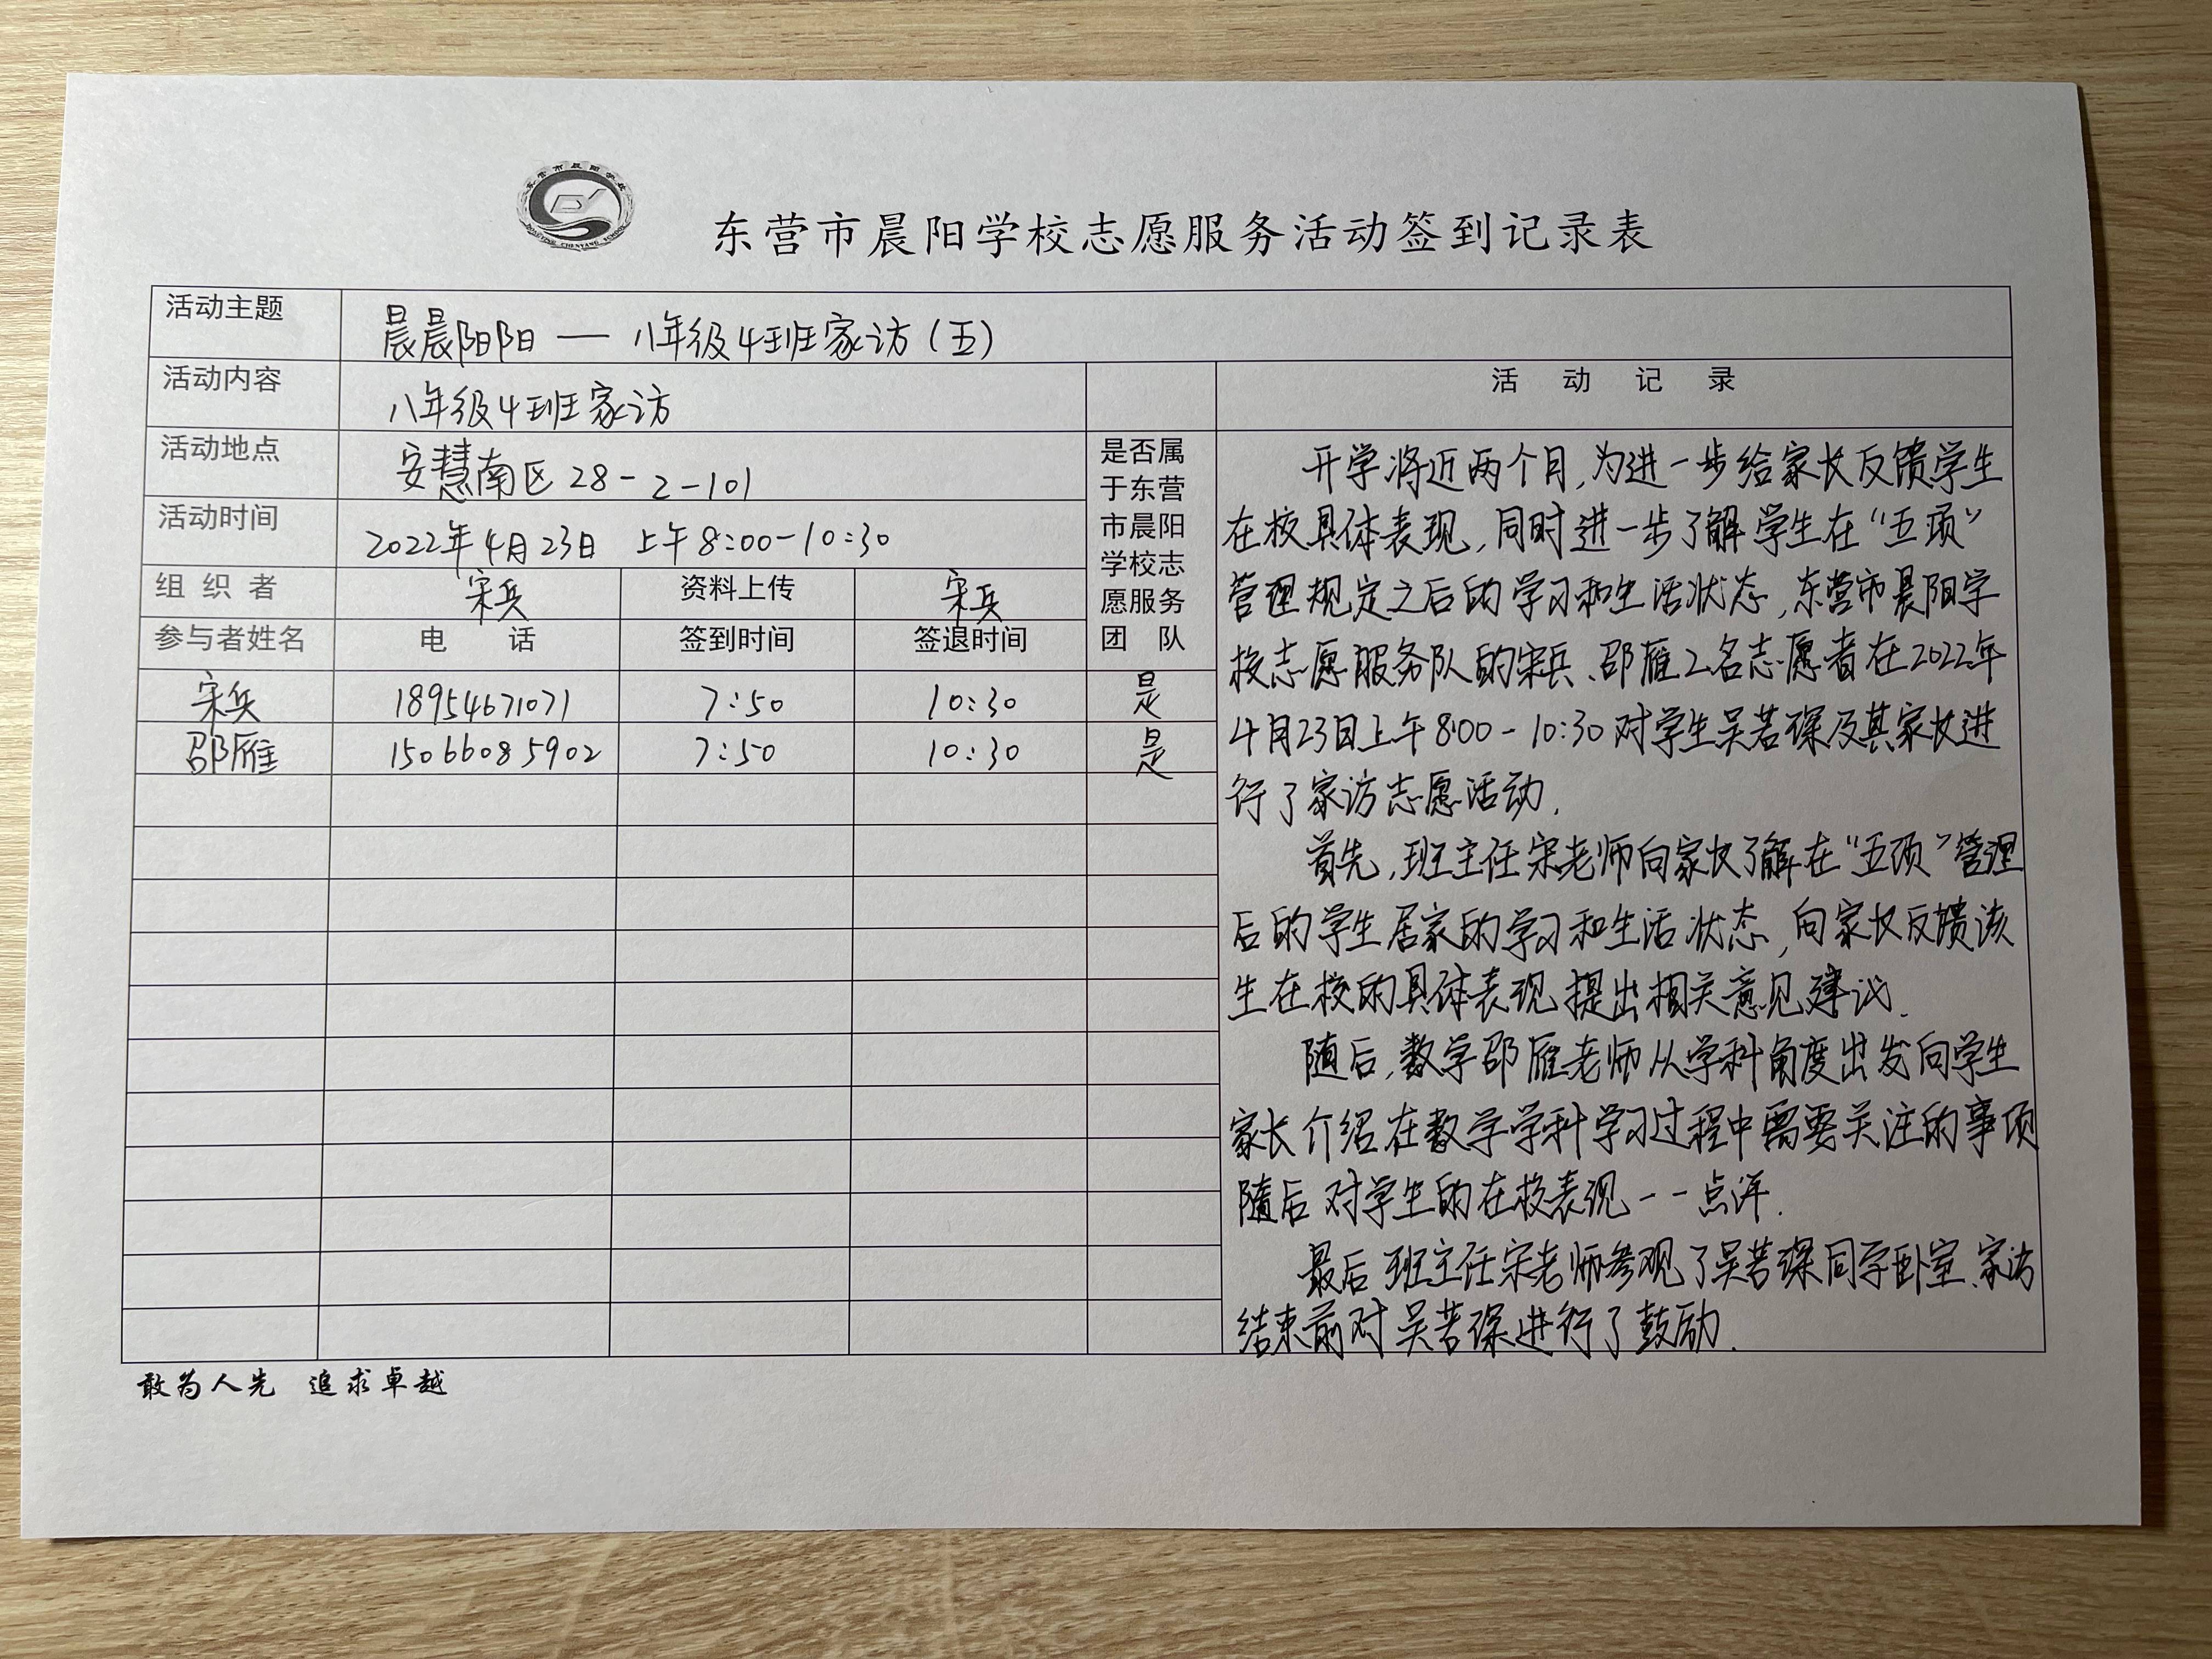 东营市晨阳学校志愿服务活动签到记录表
活动主题 晨晨阳阳 — 八年级4班家访（五）
活动内容 八年级4班家访
活动地点 安慧南区28-2-101
活动时间 2022年4月23日 上午8:00-10:30
组织者 宋兵 资料上传 宋兵
参与者姓名 电 话 签到时间 签退时间
是否属
于东营
市晨阳
学校志
愿服务
团 队
宋兵 18954671071 7:50 10:30 是
邵雁 15066085902 7:50 10:30 是
活 动 记 录
开学将近两个月,为进一步给家长反馈学生
在校具体表现,同时进一步了解学生在“五项”
管理规定之后的学习和生活状态,东营市晨阳学
校志愿服务队的宋兵、邵雁2名志愿者在2022年
4月23日上午8:00-10:30对学生吴若琛及其家长进
行了家访志愿活动.
首先,班主任宋老师向家长了解在“五项”管理
后的学生居家的学习和生活状态,向家长反馈该
生在校的具体表现提出相关意见建议.
随后,数学邵雁老师从学科角度出发向学生
家长介绍在数学学科学习过程中需要关注的事项
随后对学生的在校表现一一点评.
最后班主任宋老师参观了吴若琛同学卧室、家访
结束前对吴若琛进行了鼓励.
敢为人先 追求卓越